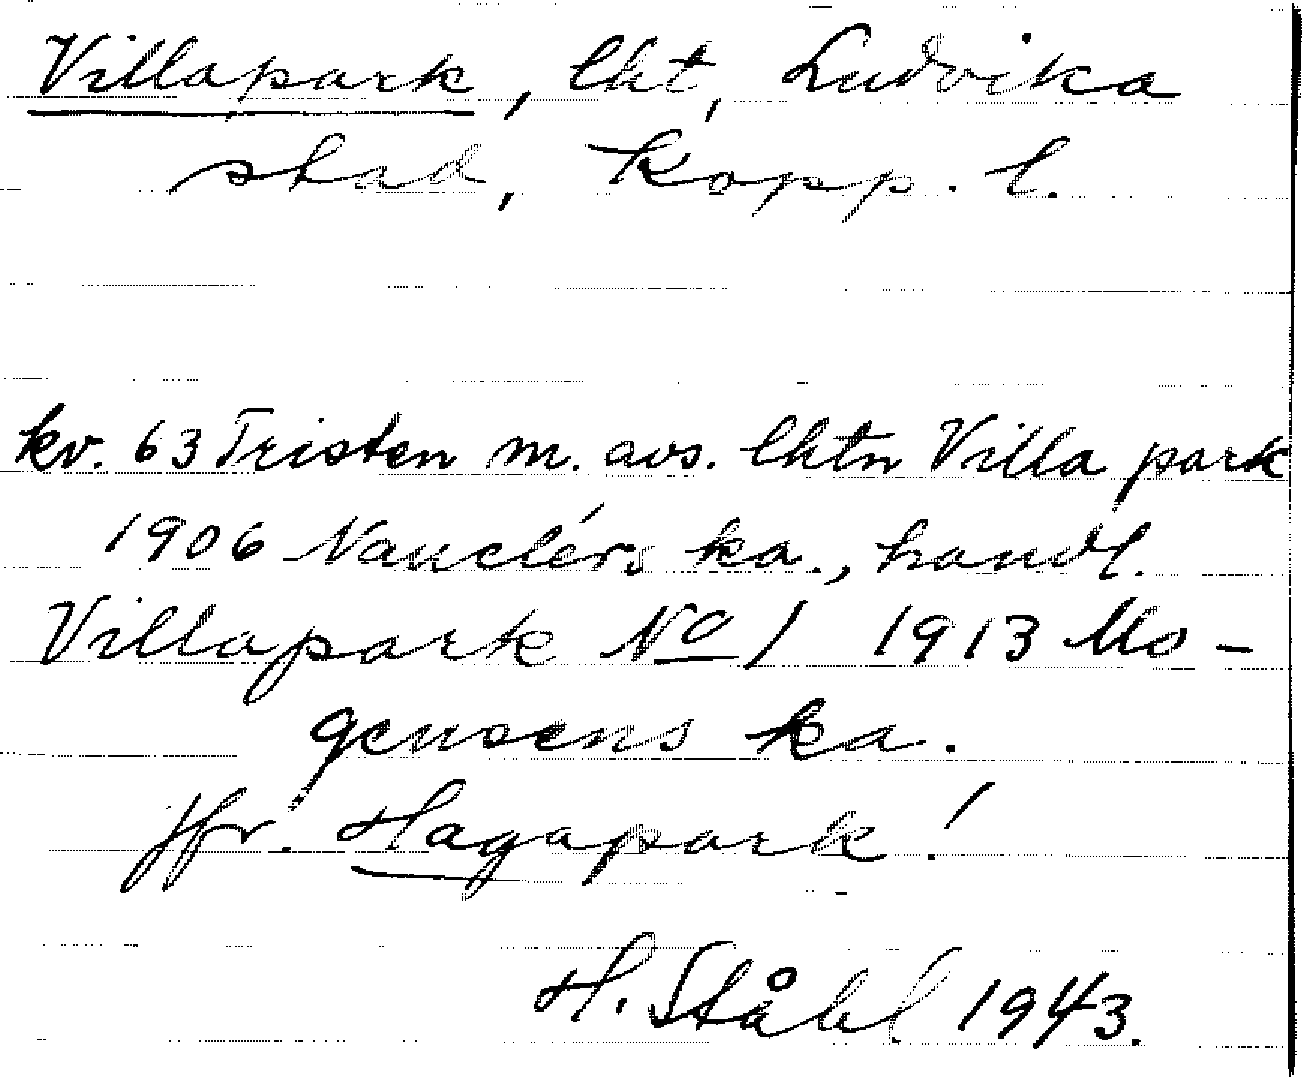 Villapark, lht, Ludvika
stad, Kopp. l.
kv. 63 Tristen m. avs. lhtn Villa park
1906 Nauclérs ka., handl.
Villapark No 1 1913 Mo-
gensens ka.
Jfr. Hagapark!
H. Ståhl 1943.